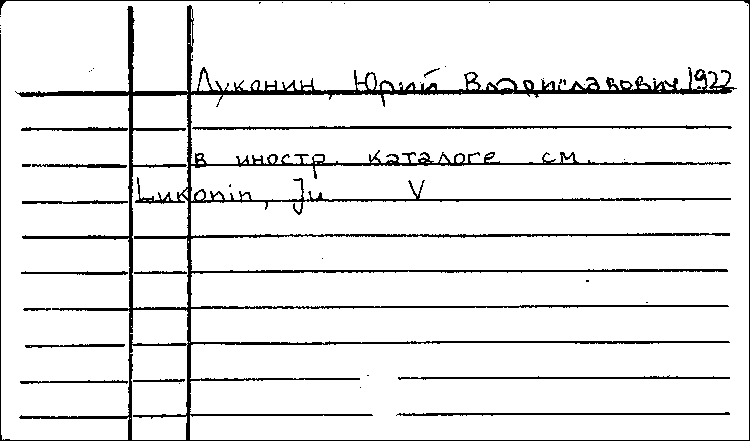 Луконин, Юрий Владиславович 1922
в иностр. каталоге см.
Lukonin, Ju V